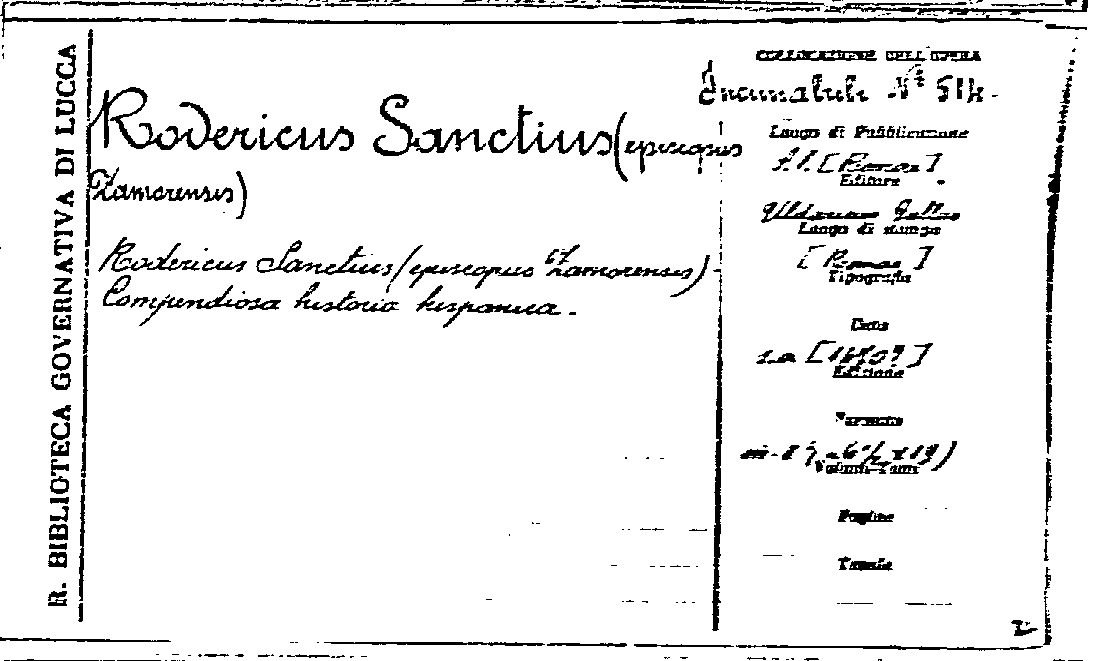 R. BIBLIOTECA GOVERNATIVA DI LUCCA
Rodericus Sanctius (episcopus
Zamorensis)
Rodericus Sanctius (episcopus Zamorensis) -
Compendiosa historia hispanica.
COLLOCAZIONE DELL'OPERA
Incunabuli N° 514.
Luogo di Pubblicazione
[Romae]
Editore
Luogo di stampa
[Romae]
Tipografo
Data
s.a.
Edizione
Formato
in-8
Volumi-Tomi
Pagine
Tavole